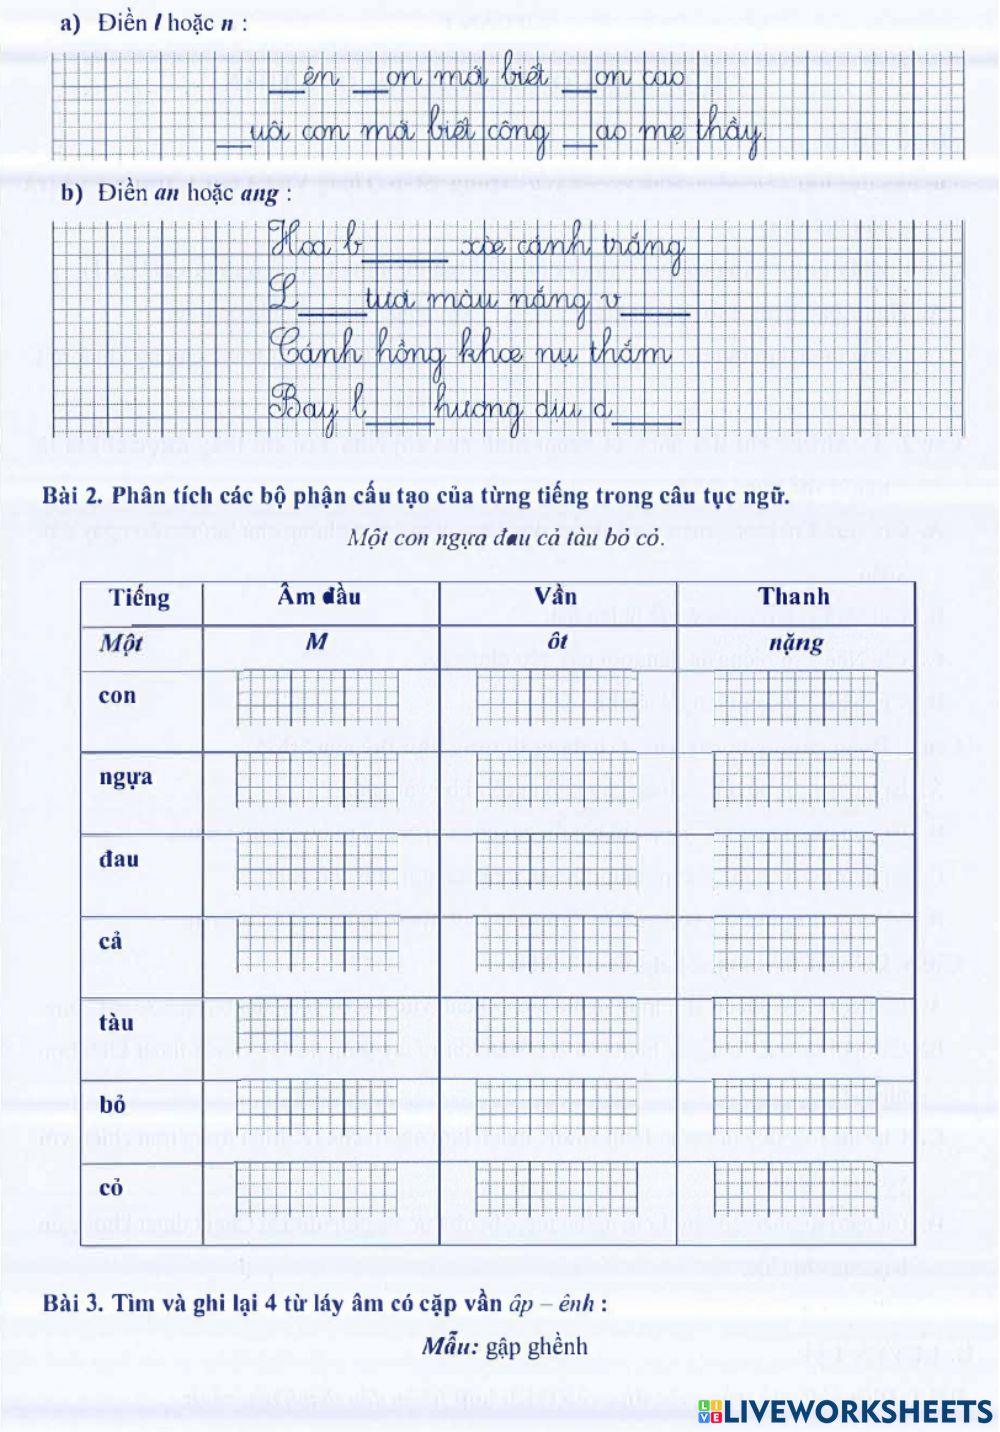 a) Điền l hoặc n :
__ên __on mới biết __on cao
__uôi con mới biết công __ao mẹ thầy.
b) Điền an hoặc ang :
Hoa b____ xòe cánh trắng
L____ tươi màu nắng v____
Cánh hồng khoe nụ thắm
Bay l____ hương dịu d____
Bài 2. Phân tích các bộ phận cấu tạo của từng tiếng trong câu tục ngữ.
Một con ngựa đau cả tàu bỏ cỏ.
Tiếng Âm đầu Vần Thanh
Một M ôt nặng
con
ngựa
đau
cả
tàu
bỏ
cỏ
Bài 3. Tìm và ghi lại 4 từ láy âm có cặp vần âp – ênh :
Mẫu: gập ghềnh
LIVEWORKSHEETS